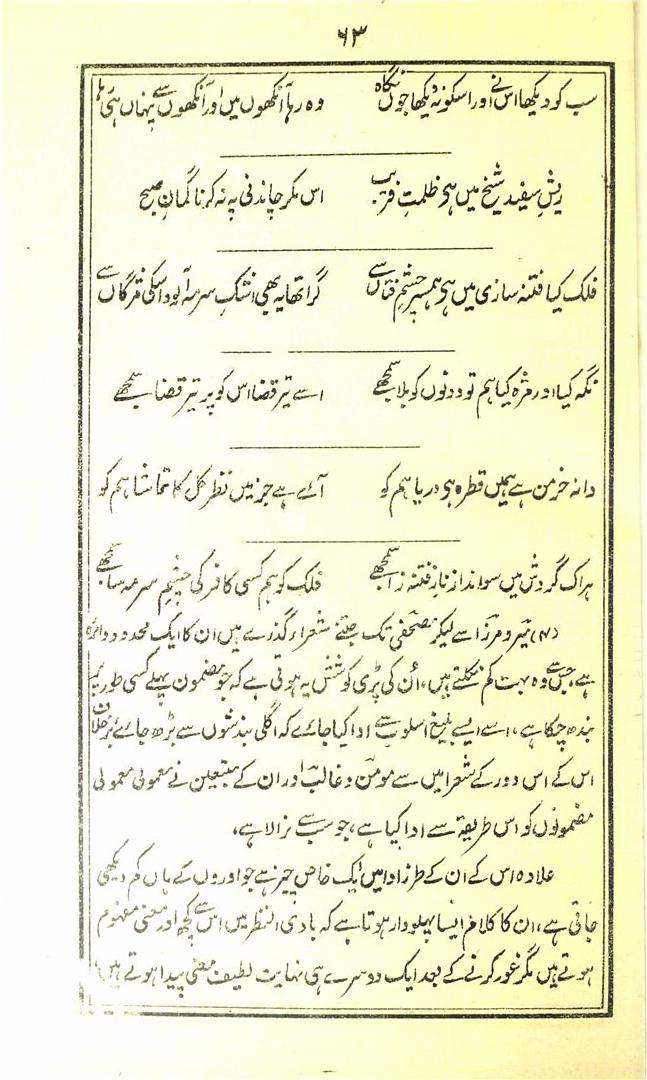 ۶۳
سب کو دیکھا اس نے اور اسکو نہ دیکھا جوں نگاہ وہ رہا آنکھوں میں اور آنکھوں سے پنہاں ہی رہا
ریش سفید شیخ میں ہی ظلمتِ فریب اس مکر چاندنی پہ نہ کرنا گمانِ صبح
فلک کیا فتنہ سازی میں ہی ہمسر چشمِ فتاں سے گرا تھا یہ بھی اشکِ سرمہ آلود اسکی مژگاں سے
نگہ کیا اور مژہ کیا ہم تو دونوں کو بلا سمجھے اسے تیر قضا اس کو پر تیر قضا سمجھے
دانہ خرمن ہے ہمیں قطرہ ہی دریا ہم کو آئے ہے جز میں نظر کل کا تماشا ہم کو
ہر اک گردش میں سو انداز نازِ فتنہ زا سمجھے فلک کو ہم کسی کافر کی چشمِ سرمہ سا سمجھے
(۴) میر و مرزا سے لیکر مصحفی تک جتنے شعرا گذرے ہیں ان کا ایک محدود دائرہ
ہے، جس سے وہ بہت کم نکلتے ہیں، اُن کی بڑی کوشش یہ ہوتی ہے کہ جو مضمون پہلے کسی طور پر
بندھ چکا ہے، اسے ایسے بلیغ اسلوب سے ادا کیا جائے کہ اگلی بندشوں سے بڑھ جائے برخلاف
اس کے اس دور کے شعرا میں سے مومن و غالب اور ان کے متبعین نے معمولی معمولی
مضمونوں کو اس طریقہ سے ادا کیا ہے، جو سب سے نرالا ہے،
علاوہ اس کے ان کے طرز ادا میں ایک خاص چیز ہے جو اوروں کے ہاں کم دیکھی
جاتی ہے، ان کا کلام ایسا پہلودار ہوتا ہے کہ بادی النظر میں اس سے کچھ اور معنی مفہوم
ہوتے ہیں مگر غور کرنے کے بعد ایک دوسرے ہی نہایت لطیف معنی پیدا ہوتے ہیں